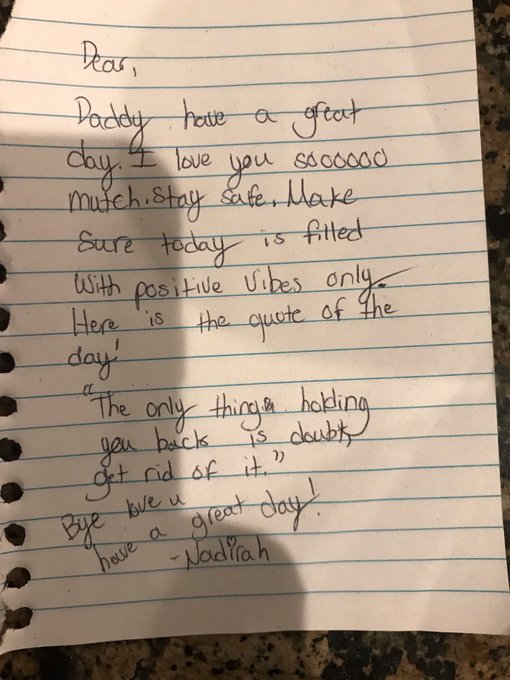 Dear,
Daddy have a great
day. I love you soooooo
mutch. Stay safe. Make
Sure today is filled
With positive Vibes only.
Here is the quote of the
day!
"The only thing holding
you back is doubt,
get rid of it."
Bye love u
have a great day!
-Nadirah